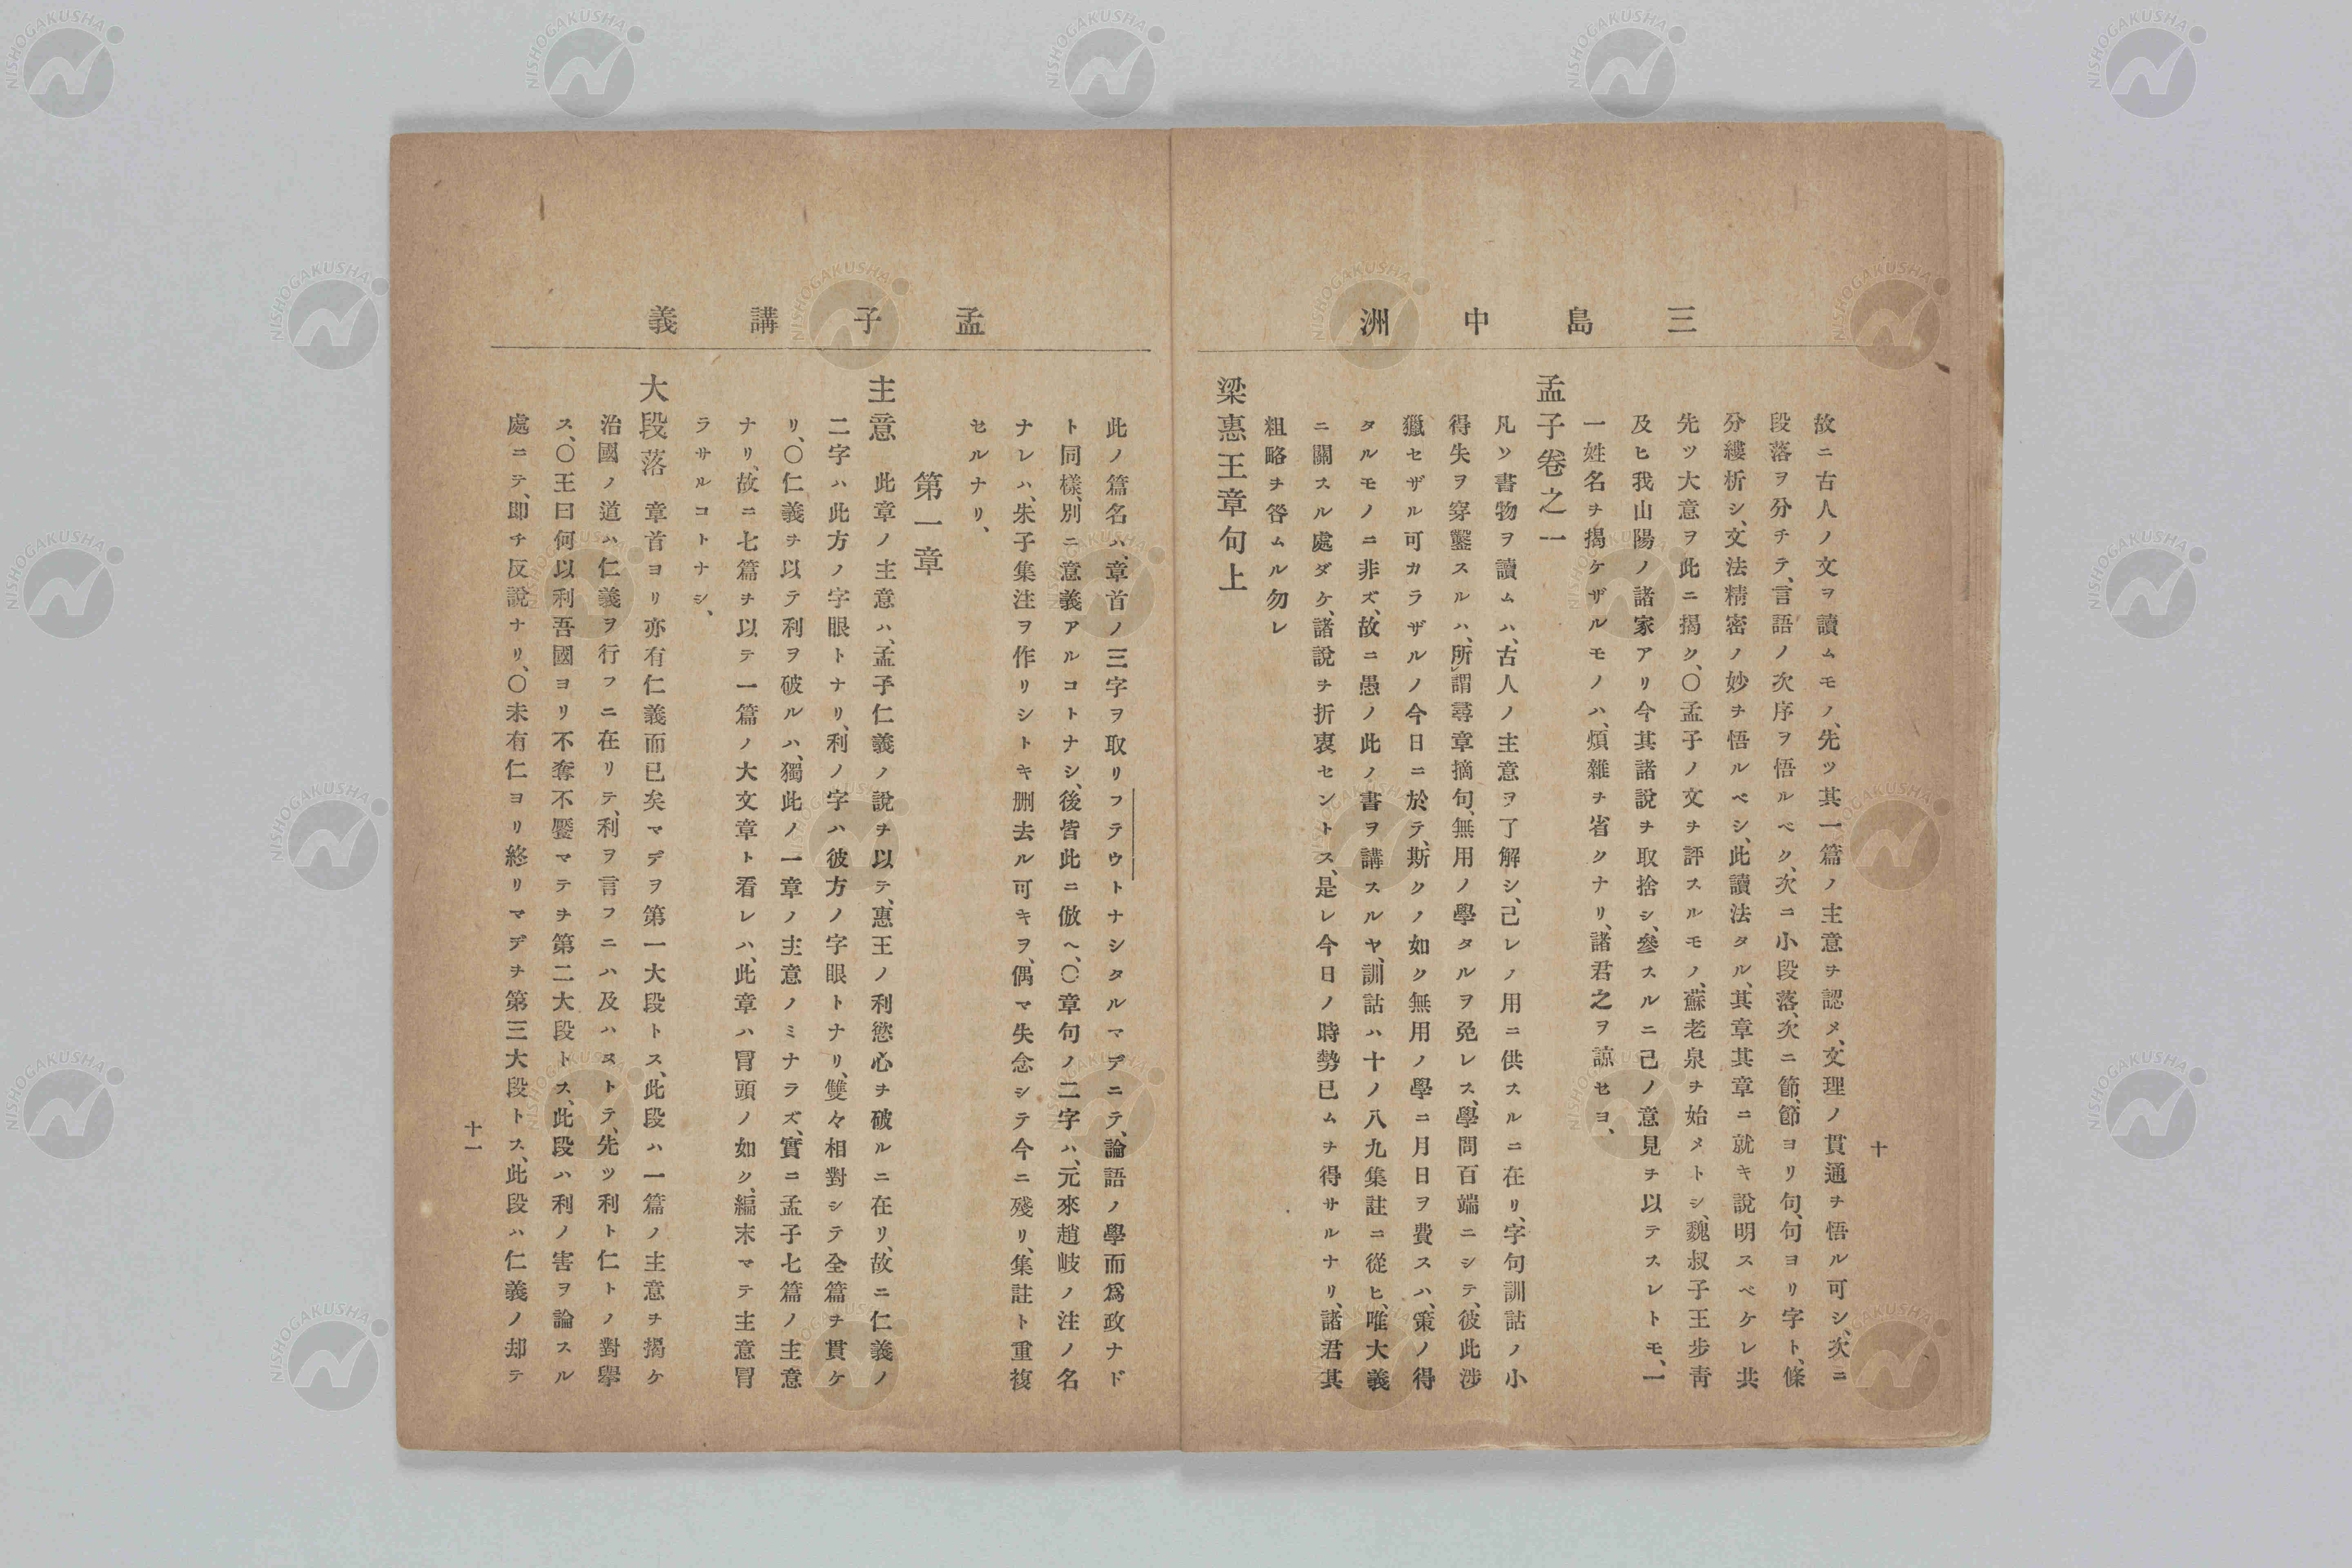 三島中洲
故ニ古人ノ文ヲ讀ムモノ、先ツ其一篇ノ主意ヲ認メ、文理ノ貫通ヲ悟ル可シ、次ニ
段落ヲ分チテ、言語ノ次序ヲ悟ルベク、次ニ小段落、次ニ節、節ヨリ句、句ヨリ字ト、條
分縷析シ、文法精密ノ妙ヲ悟ルベシ、此讀法タル、其章其章ニ就キ說明スベケレ共
先ツ大意ヲ此ニ揭ク、〇孟子ノ文ヲ評スルモノ、蘇老泉ヲ始メトシ、魏叔子王步靑
及ヒ我山陽ノ諸家アリ今其諸說ヲ取捨シ、參スルニ己ノ意見ヲ以テスレトモ、一
一姓名ヲ揭ケザルモノハ、煩雜ヲ省クナリ、諸君之ヲ諒セヨ、
孟子卷之一
凡ソ書物ヲ讀ムハ、古人ノ主意ヲ了解シ、己レノ用ニ供スルニ在リ、字句訓詁ノ小
得失ヲ穿鑿スルハ、所謂尋章摘句、無用ノ學タルヲ免レス、學問百端ニシテ、彼此涉
獵セザル可カラザルノ今日ニ於テ、斯クノ如ク無用ノ學ニ月日ヲ費スハ、策ノ得
タルモノニ非ズ、故ニ愚ノ此ノ書ヲ講スルヤ、訓詁ハ十ノ八九集註ニ從ヒ、唯大義
ニ關スル處ダケ、諸說ヲ折衷セントス、是レ今日ノ時勢已ムヲ得サルナリ、諸君其
粗略ヲ咎ムル勿レ
梁惠王章句上
十
孟子講義
此ノ篇名ハ、章首ノ三字ヲ取リフテウトナシタルマデニテ、論語ノ學而爲政ナド
ト同樣、別ニ意義アルコトナシ、後皆此ニ倣ヘ、〇章句ノ二字ハ、元來趙岐ノ注ノ名
ナレハ、朱子集注ヲ作リシトキ删去ル可キヲ、偶マ失念シテ今ニ殘リ、集註ト重複
セルナリ、
第一章
主意 此章ノ主意ハ、孟子仁義ノ說ヲ以テ、惠王ノ利慾心ヲ破ルニ在リ、故ニ仁義ノ
二字ハ此方ノ字眼トナリ、利ノ字ハ彼方ノ字眼トナリ、雙々相對シテ全篇ヲ貫ケ
リ、〇仁義ヲ以テ利ヲ破ルハ、獨此ノ一章ノ主意ノミナラズ、實ニ孟子七篇ノ主意
ナリ、故ニ七篇ヲ以テ一篇ノ大文章ト看レハ、此章ハ冐頭ノ如ク、編末マテ主意冐
ラサルコトナシ、
大段落 章首ヨリ亦有仁義而已矣マデヲ第一大段トス、此段ハ一篇ノ主意ヲ揭ケ
治國ノ道ハ仁義ヲ行フニ在リテ、利ヲ言フニハ及ハストテ、先ツ利ト仁トノ對擧
ス、〇王曰何以利吾國ヨリ不奪不饜マテヲ第二大段トス、此段ハ利ノ害ヲ論スル
處ニテ、即チ反說ナリ、〇未有仁ヨリ終リマデヲ第三大段トス、此段ハ仁義ノ却テ
十一
NISHOGAKUSHA